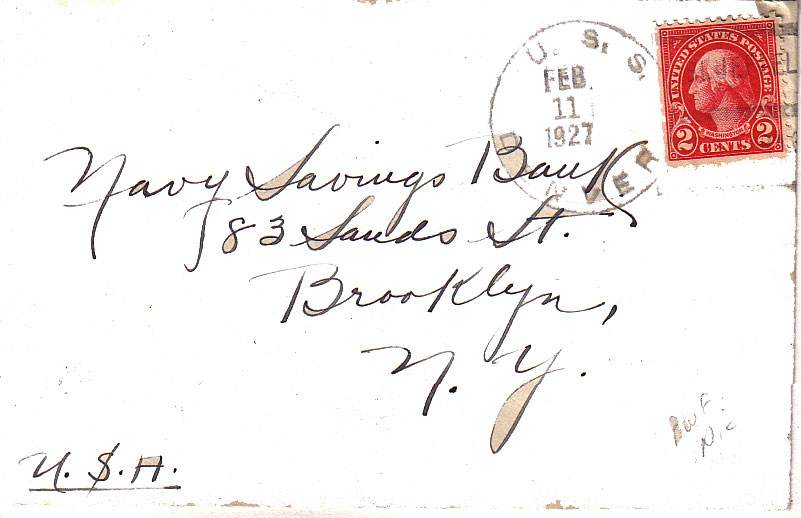 U. S. S. DENVER
FEB
11
1927
UNITED STATES POSTAGE
WASHINGTON
2 CENTS 2
Navy Savings Bank
83 Sands St.
Brooklyn,
N. Y.
U. S. A.